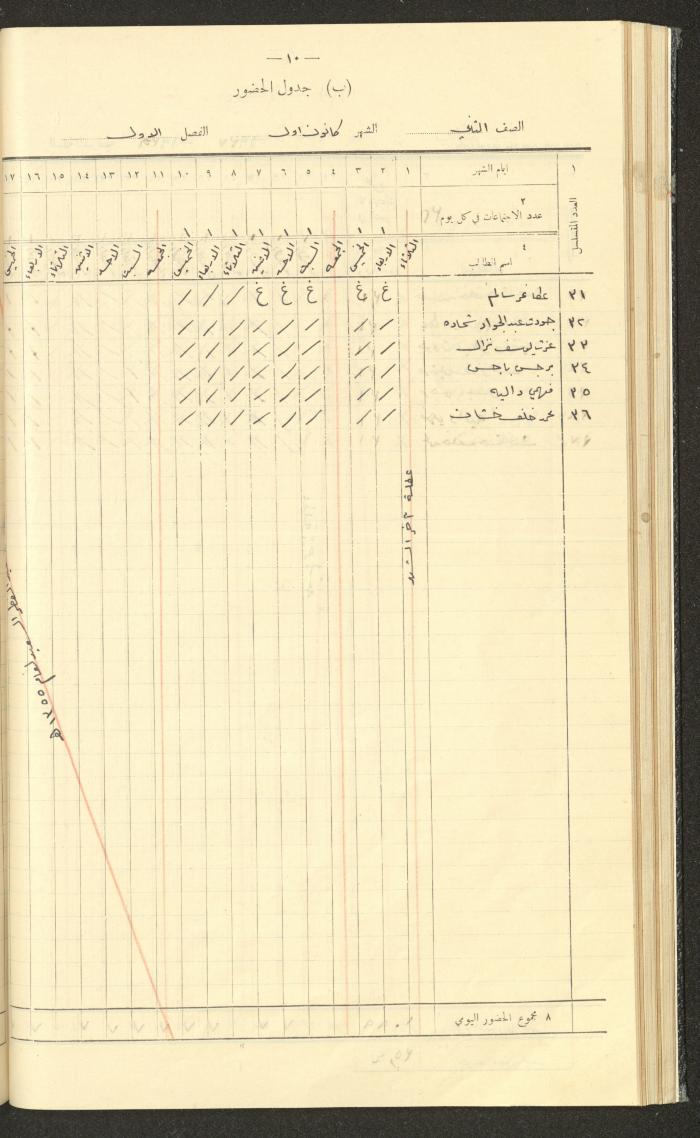 — ١٠ —
(ب) جدول الحضور
الصف الثاني الشهر كانون اول الفصل الاول
١ ايام الشهر ١ ٢ ٣ ٤ ٥ ٦ ٧ ٨ ٩ ١٠ ١١ ١٢ ١٣ ١٤ ١٥ ١٦ ١٧
العدد المتسلسل
٢
عدد الاجتماعات في كل يوم ١ ١ ١ ١ ١ ١ ١ ١
٤
اسم الطالب الثلاثاء الاربعاء الخميس الجمعه السبت الاحد الاثنين الثلاثاء الاربعاء الخميس الجمعه السبت الاحد الاثنين الثلاثاء الاربعاء الخميس
٣١ عطا عمر سالم غ غ غ غ غ / / /
٣٢ جودت عبد الجواد شحاده / / / / / / / /
٣٣ عزت يوسف نزال / / / / / / / /
٣٤ برجس باجس / / / / / / / /
٣٥ فهمي داليه / / / / / / / /
٣٦ محمد خلف / / / / / / / /
عطلة آخر الشهر
١٣٥٥ هـ
٨ مجموع الحضور اليومي